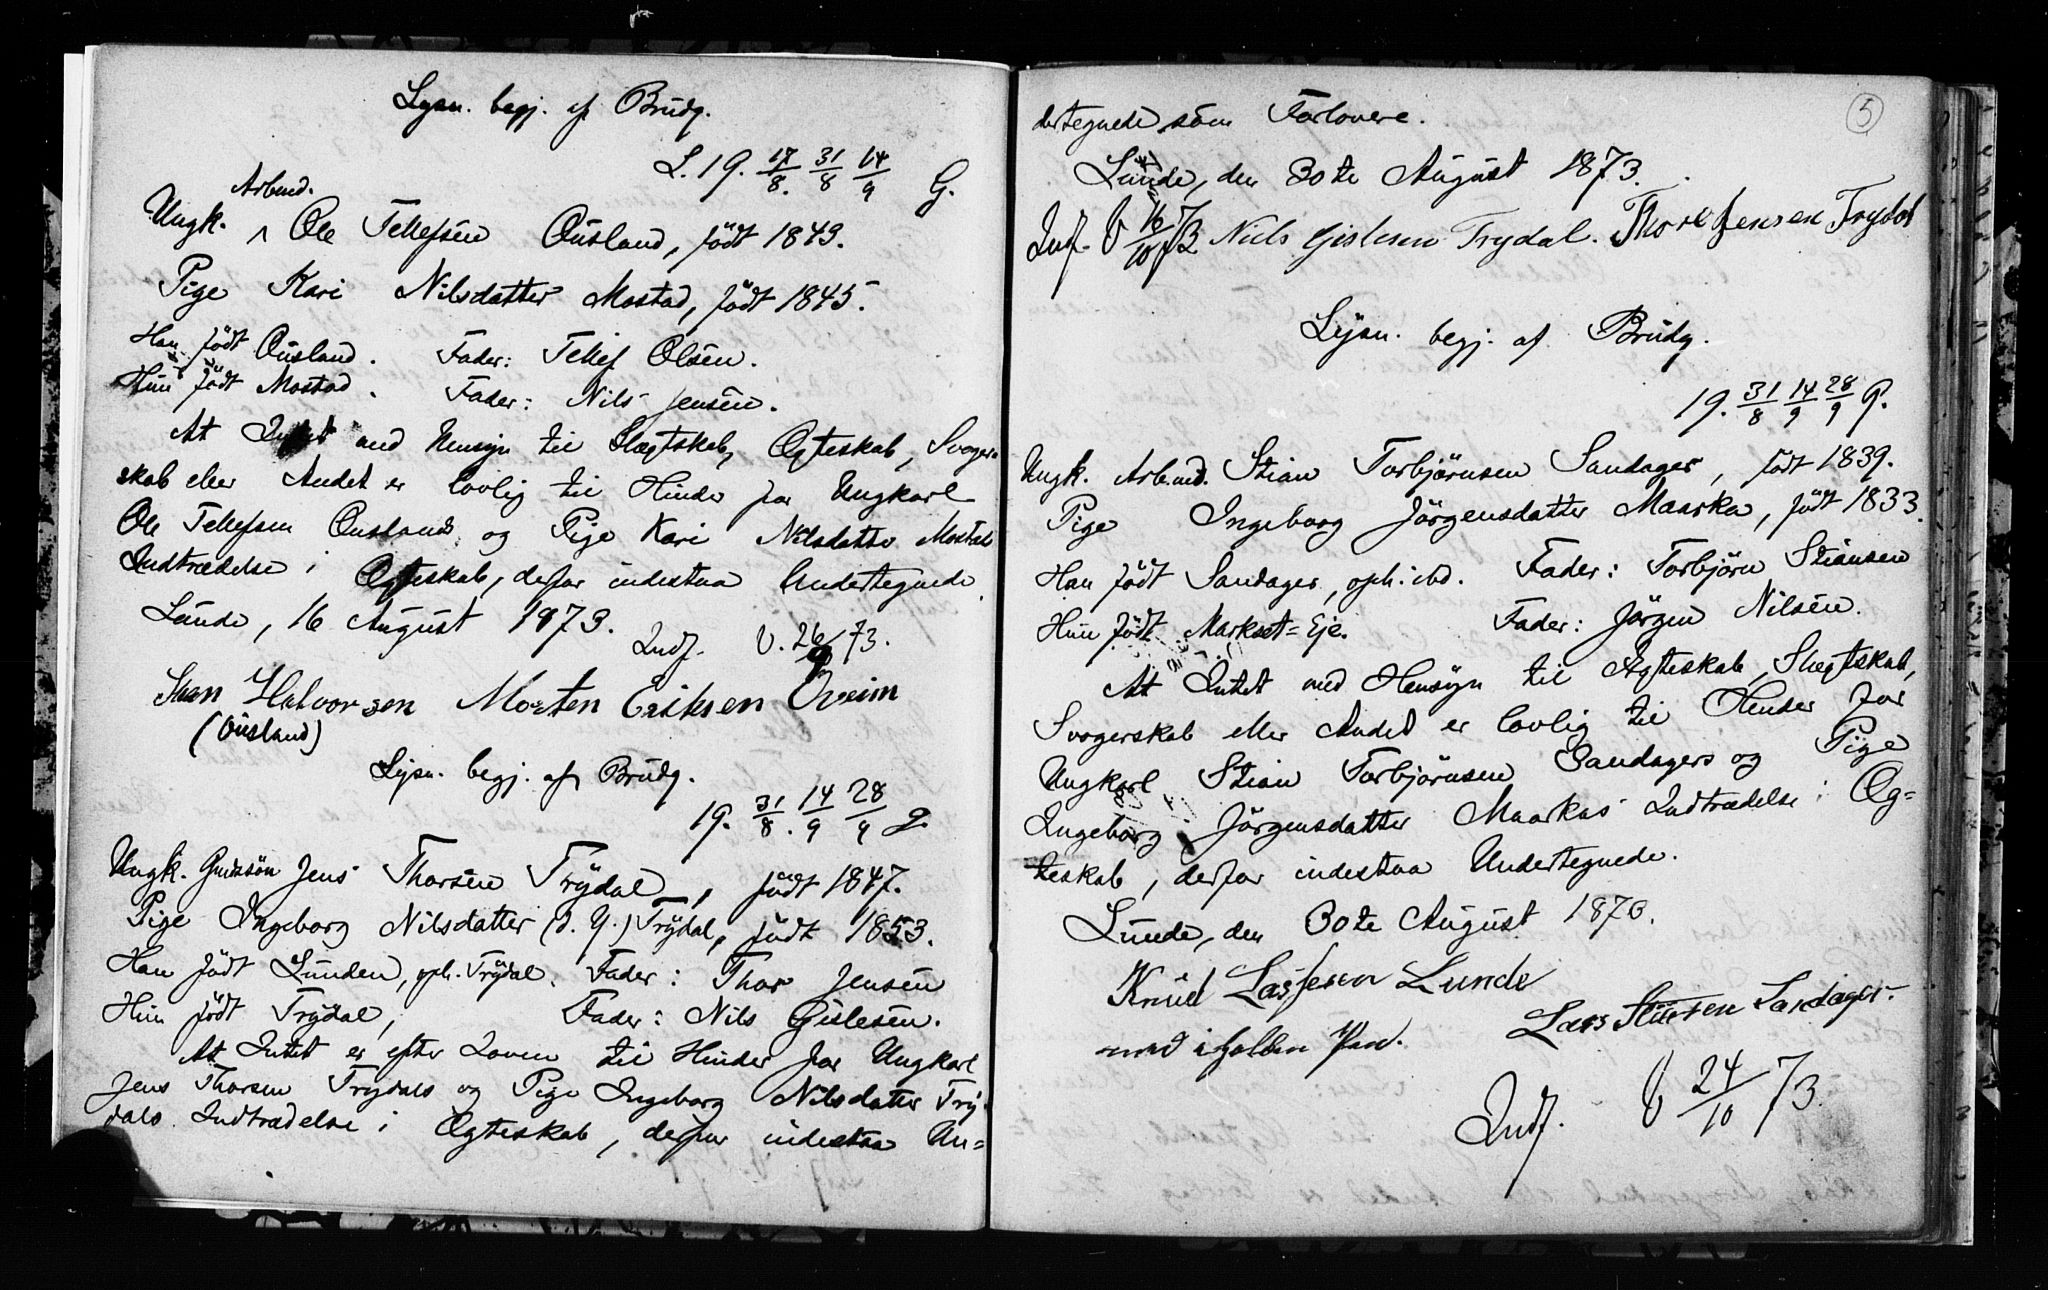 Lysn. begj. af Brudg.
L. 19. 17/8. 31/8 14/9 G.
Arbmd.
Ungk. ^ Ole Tellefsen Ousland, født 1849.
Pige Kari Nilsdatter Mostad, født 1845.
Han født Ousland. Fader: Tellef Olsen.
Hun født Mostad. Fader: Nils Jensen.
At Intet med Hensyn til Slægtskab, Ægteskab, Svoger-
skab eller Andet er lovlig til Hinder for Ungkarl
Ole Tellefsen Ouslands og Pige Kari Nilsdatter Mostads
Indtrædelse i Ægteskab, derfor indestaa Undertegnede.
Lunde, 16 August 1873.
Indf. V. 26/9 73.
Sven Halvorsen Morten Eriksen Øveim
(Ousland)
Lysn. begj. af Brudg.
19. 31/8. 14/9 28/9 g.
Ungk. Gmdssøn Jens Thorsen Trydal, født 1847.
Pige Ingeborg Nilsdatter (d. Y.) Trydal, født 1853.
Han født Lunden, oph. Trydal. Fader: Thor Jensen
Hun født Trydal, Fader: Nils Gislesen.
At Intet er efter Loven til Hinder for Ungkarl
Jens Thorsen Trydals og Pige Ingeborg Nilsdatter Try-
dals Indtrædelse i Ægteskab, derfor indestaa Un=
5
dertegnede som Forlovere.
Lunde, den 30te August 1873.
Indf. V 16/10 73 Niels Gislesen Trydal. Thore Jensen Trydal
Lysn. begj. af Brudg.
19. 31/8 14/9 28/9 g.
Ungk. Arbmd. Stian Torbjørnsen Sandager, født 1839.
Pige Ingeborg Jørgensdatter Maarka, født 1833.
Han født Sandager, oph. ibd. Fader: Torbjørn Stiansen
Hun født Markset=Eje. Fader: Jørgen Nilsen.
At Intet med Hensyn til Ægteskab, Slægtskab,
Svogerskab eller Andet er lovlig til Hinder for
Ungkarl Stian Torbjørnsen Sandagers og Pige
Ingeborg Jørgensdatter Maarkas Indtrædelse i Æg=
teskab, derfor indestaa Undertegnede.
Lunde, den 30te August 1873.
Knud Lassesen Lunde
Lars Stiansen Sandager.
med iholden Pen.
Indf. V 24/10 73.